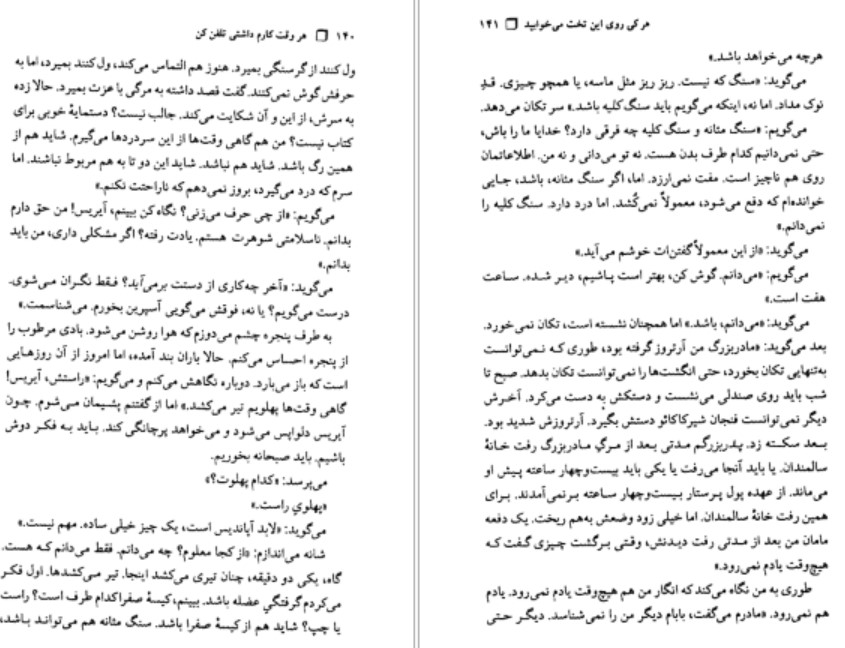 ۱۴۰ ❒ هر وقت کارم داشتی تلفن کن
ول کنند از گرسنگی بمیرد. هنوز هم التماس می‌کند، ول کنند بمیرد، اما به
حرفش گوش نمی‌کنند. گفت قصد داشته به مرگی با عزت بمیرد. حالا زده
به سرش، از این و آن شکایت می‌کند. جالب نیست؟ دستمایهٔ خوبی برای
کتاب نیست؟ من هم گاهی وقت‌ها از این سردردها می‌گیرم. شاید هم از
همین رگ باشد. شاید هم نباشد. شاید این دو تا به هم مربوط نباشند. اما
سرم که درد می‌گیرد، بروز نمی‌دهم که ناراحتت نکنم.»
می‌گویم: «از چی حرف می‌زنی؟ نگاه کن ببینم، آیریس! من حق دارم
بدانم. ناسلامتی شوهرت هستم. یادت رفته؟ اگر مشکلی داری، من باید
بدانم.»
می‌گوید: «آخر چه‌کاری از دستت برمی‌آید؟ فقط نگران می‌شوی.
درست می‌گویم؟ یا نه، فوقش می‌گویی آسپرین بخورم. می‌شناسمت.»
به طرف پنجره چشم می‌دوزم که هوا روشن می‌شود. بادی مرطوب را
از پنجره احساس می‌کنم. حالا باران بند آمده، اما امروز از آن روزهایی
است که باز می‌بارد. دوباره نگاهش می‌کنم و می‌گویم: «راستش، آیریس!
گاهی وقت‌ها پهلویم تیر می‌کشد.» اما از گفتنم پشیمان می‌شوم. چون
آیریس دلواپس می‌شود و می‌خواهد پرچانگی کند. باید به فکر دوش
باشیم. باید صبحانه بخوریم.
می‌پرسد: «کدام پهلوت؟»
«پهلوی راست.»
می‌گوید: «لابد آپاندیس است، یک چیز خیلی ساده. مهم نیست.»
شانه می‌اندازم: «از کجا معلوم؟ چه می‌دانم. فقط می‌دانم که هست.
گاه، یکی دو دقیقه، چنان تیری می‌کشد اینجا. تیر می‌کشدها. اول فکر
می‌کردم گرفتگی عضله باشد. ببینم، کیسهٔ صفرا کدام طرف است؟ راست
یا چپ؟ شاید هم از کیسهٔ صفرا باشد. سنگ مثانه هم می‌تواند باشد،
هر کی روی این تخت می‌خوابید ❒ ۱۴۱
هرچه می‌خواهد باشد.»
می‌گوید: «سنگ که نیست. ریز ریز مثل ماسه، یا همچو چیزی. قدِ
نوک مداد. اما نه، اینکه می‌گویم باید سنگ کلیه باشد.» سر تکان می‌دهد.
می‌گویم: «سنگ مثانه و سنگ کلیه چه فرقی دارد؟ خدایا ما را باش،
حتی نمی‌دانیم کدام طرف بدن هست. نه تو می‌دانی و نه من. اطلاعاتمان
روی هم ناچیز است. مفت نمی‌ارزد. اما، اگر سنگ مثانه، باشد، جایی
خوانده‌ام که دفع می‌شود، معمولاً نمی‌کُشد. اما درد دارد. سنگ کلیه را
نمی‌دانم.»
می‌گوید: «از این معمولاً گفتن‌ات خوشم می‌آید.»
می‌گویم: «می‌دانم. گوش کن، بهتر است پاشیم، دیر شده. ساعت
هفت است.»
می‌گوید: «می‌دانم، باشد.» اما همچنان نشسته است، تکان نمی‌خورد.
بعد می‌گوید: «مادربزرگ من آرتروز گرفته بود، طوری که نمی‌توانست
به‌تنهایی تکان بخورد، حتی انگشت‌ها را نمی‌توانست تکان بدهد. صبح تا
شب باید روی صندلی می‌نشست و دستکش به دست می‌کرد. آخرش
دیگر نمی‌توانست فنجان شیرکاکائو دستش بگیرد. آرتروزش شدید بود.
بعد سکته زد. پدربزرگم مدتی بعد از مرگِ مادربزرگ رفت خانهٔ
سالمندان. یا باید آنجا می‌رفت یا یکی باید بیست‌وچهار ساعته پیش او
می‌ماند. از عهده پول پرستار بیست‌وچهار ساعته برنمی‌آمدند. برای
همین رفت خانهٔ سالمندان. اما خیلی زود وضعش به‌هم ریخت. یک دفعه
مامان من بعد از مدتی رفت دیدنش، وقتی برگشت چیزی گفت که
هیچ‌وقت یادم نمی‌رود.»
طوری به من نگاه می‌کند که انگار من هم هیچ‌وقت یادم نمی‌رود. یادم
هم نمی‌رود. «مادرم می‌گفت، بابام دیگر من را نمی‌شناسد. دیگر حتی